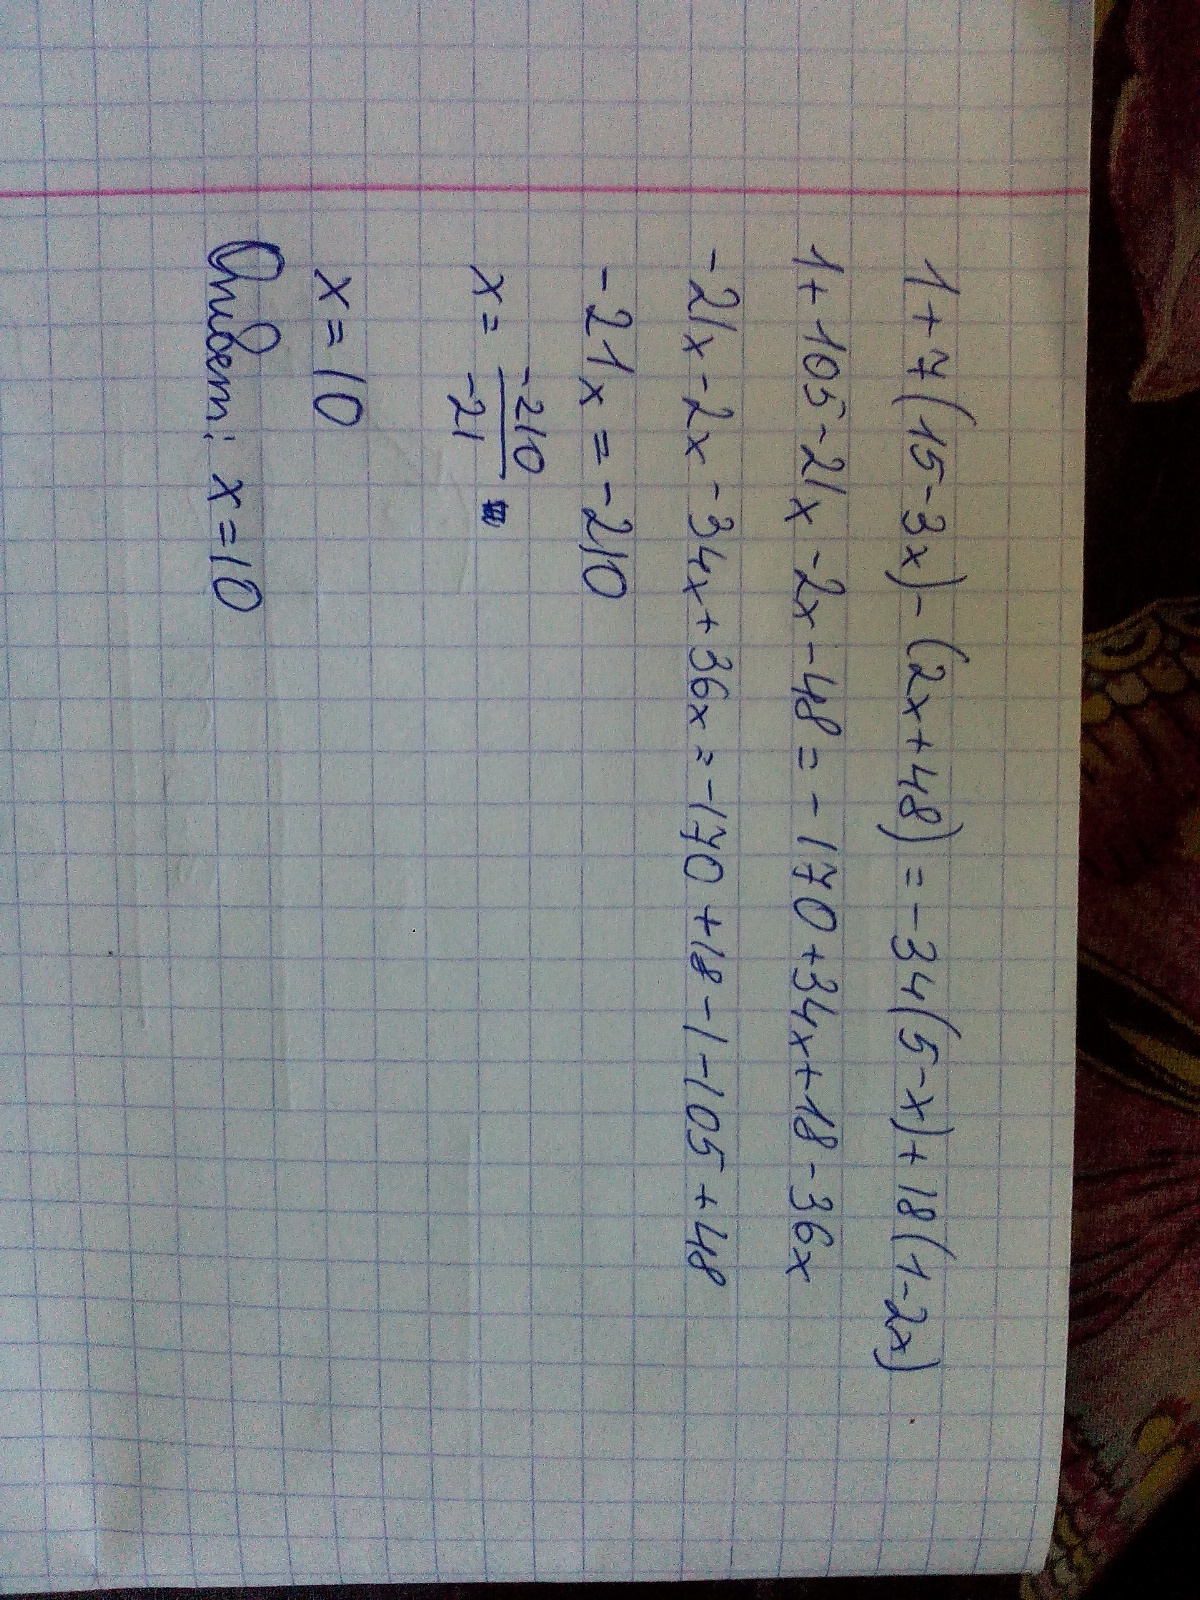 1+7(15-3x)-(2x+48)=-34(5-x)+18(1-2x)
1+105-21x-2x-48=-170+34x+18-36x
-21x-2x-34x+36x=-170+18-1-105+48
-21x=-210
x=-210/-21
x=10
Ответ: x=10